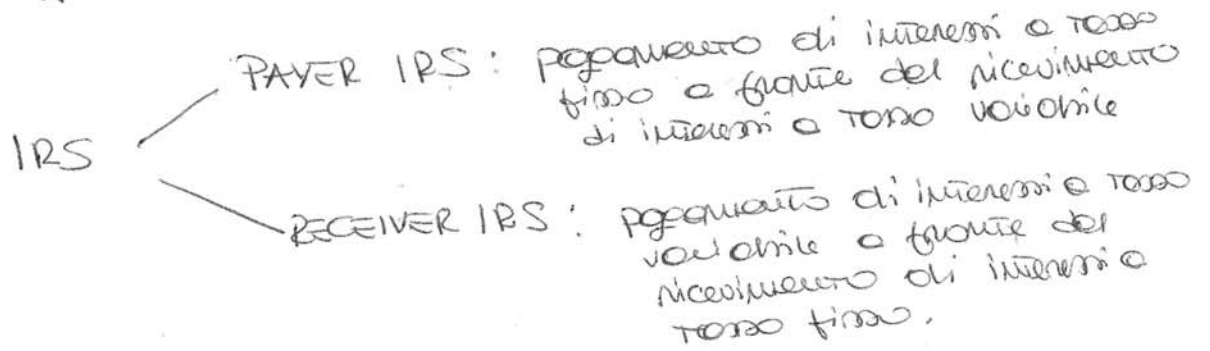 PAYER IRS: pagamento di interessi a tasso
fisso a fronte del ricevimento
di interessi a tasso variabile
IRS
RECEIVER IRS: pagamento di interessi a tasso
variabile a fronte del
ricevimento di interessi a
tasso fisso.